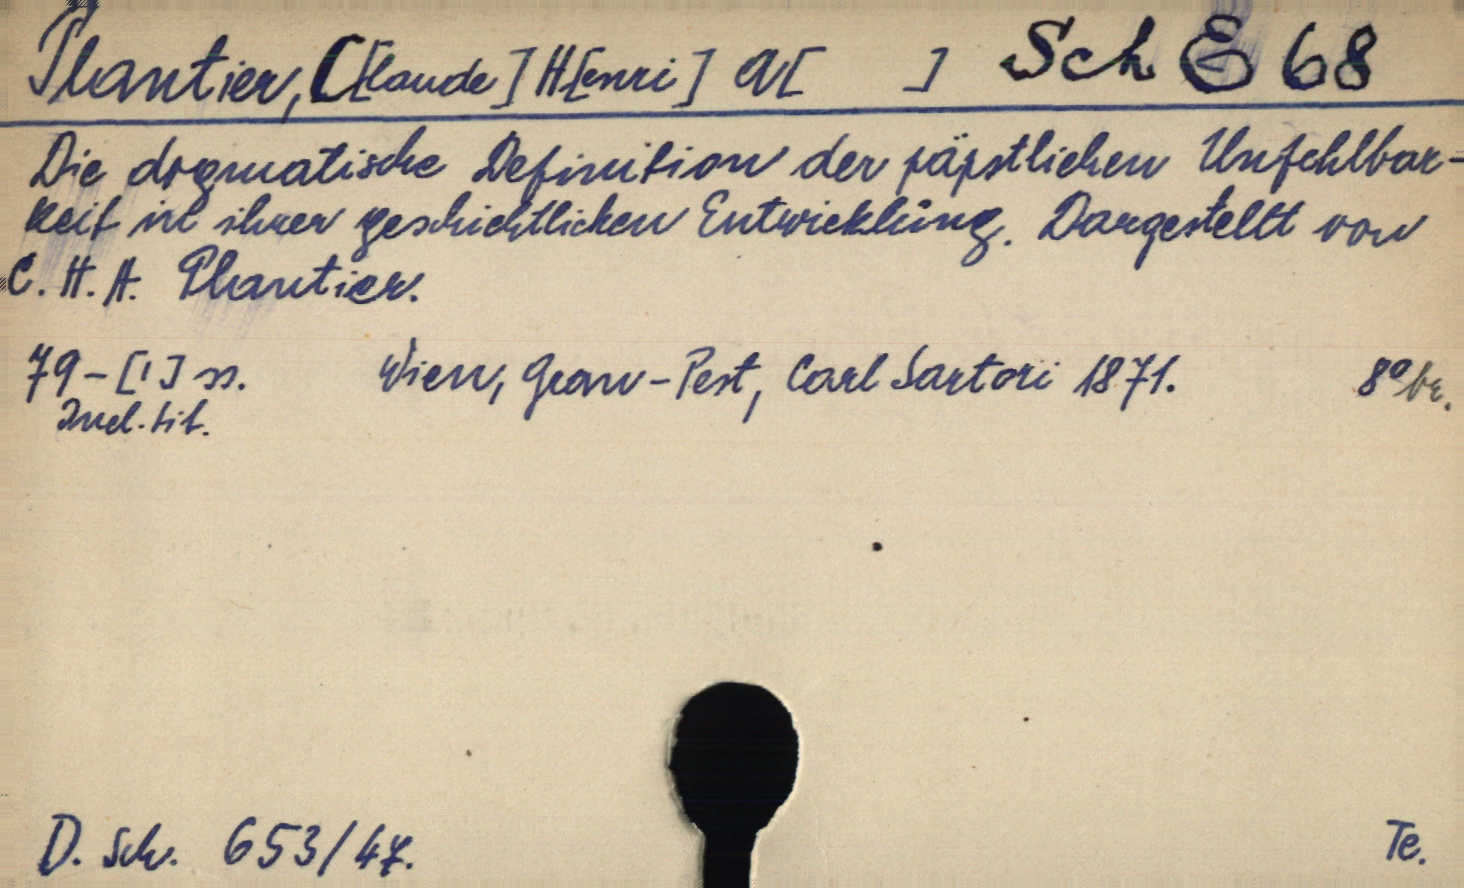 Plantier, C[laude] H[enri] A[ ] Sch E 68
Die dogmatische Definition der päpstlichen Unfehlbar-
keit in ihrer geschichtlichen Entwicklung. Dargestellt von
C. H. A. Plantier.
79-[1] ss. Wien, Gran-Pest, Carl Sartori 1871. 8° br.
Incl. tit.
D. Sch. 653/47. Te.